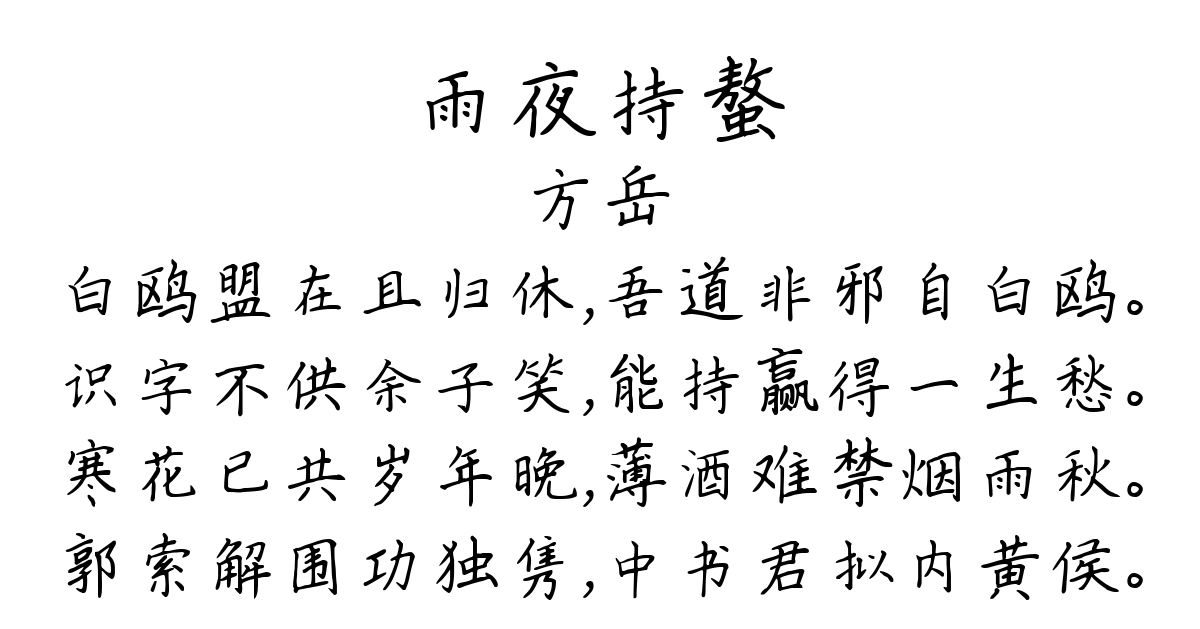 雨夜持螯
方岳
白鸥盟在且归休,吾道非邪自白鸥。
识字不供余子笑,能持赢得一生愁。
寒花已共岁年晚,薄酒难禁烟雨秋。
郭索解围功独隽,中书君拟内黄侯。